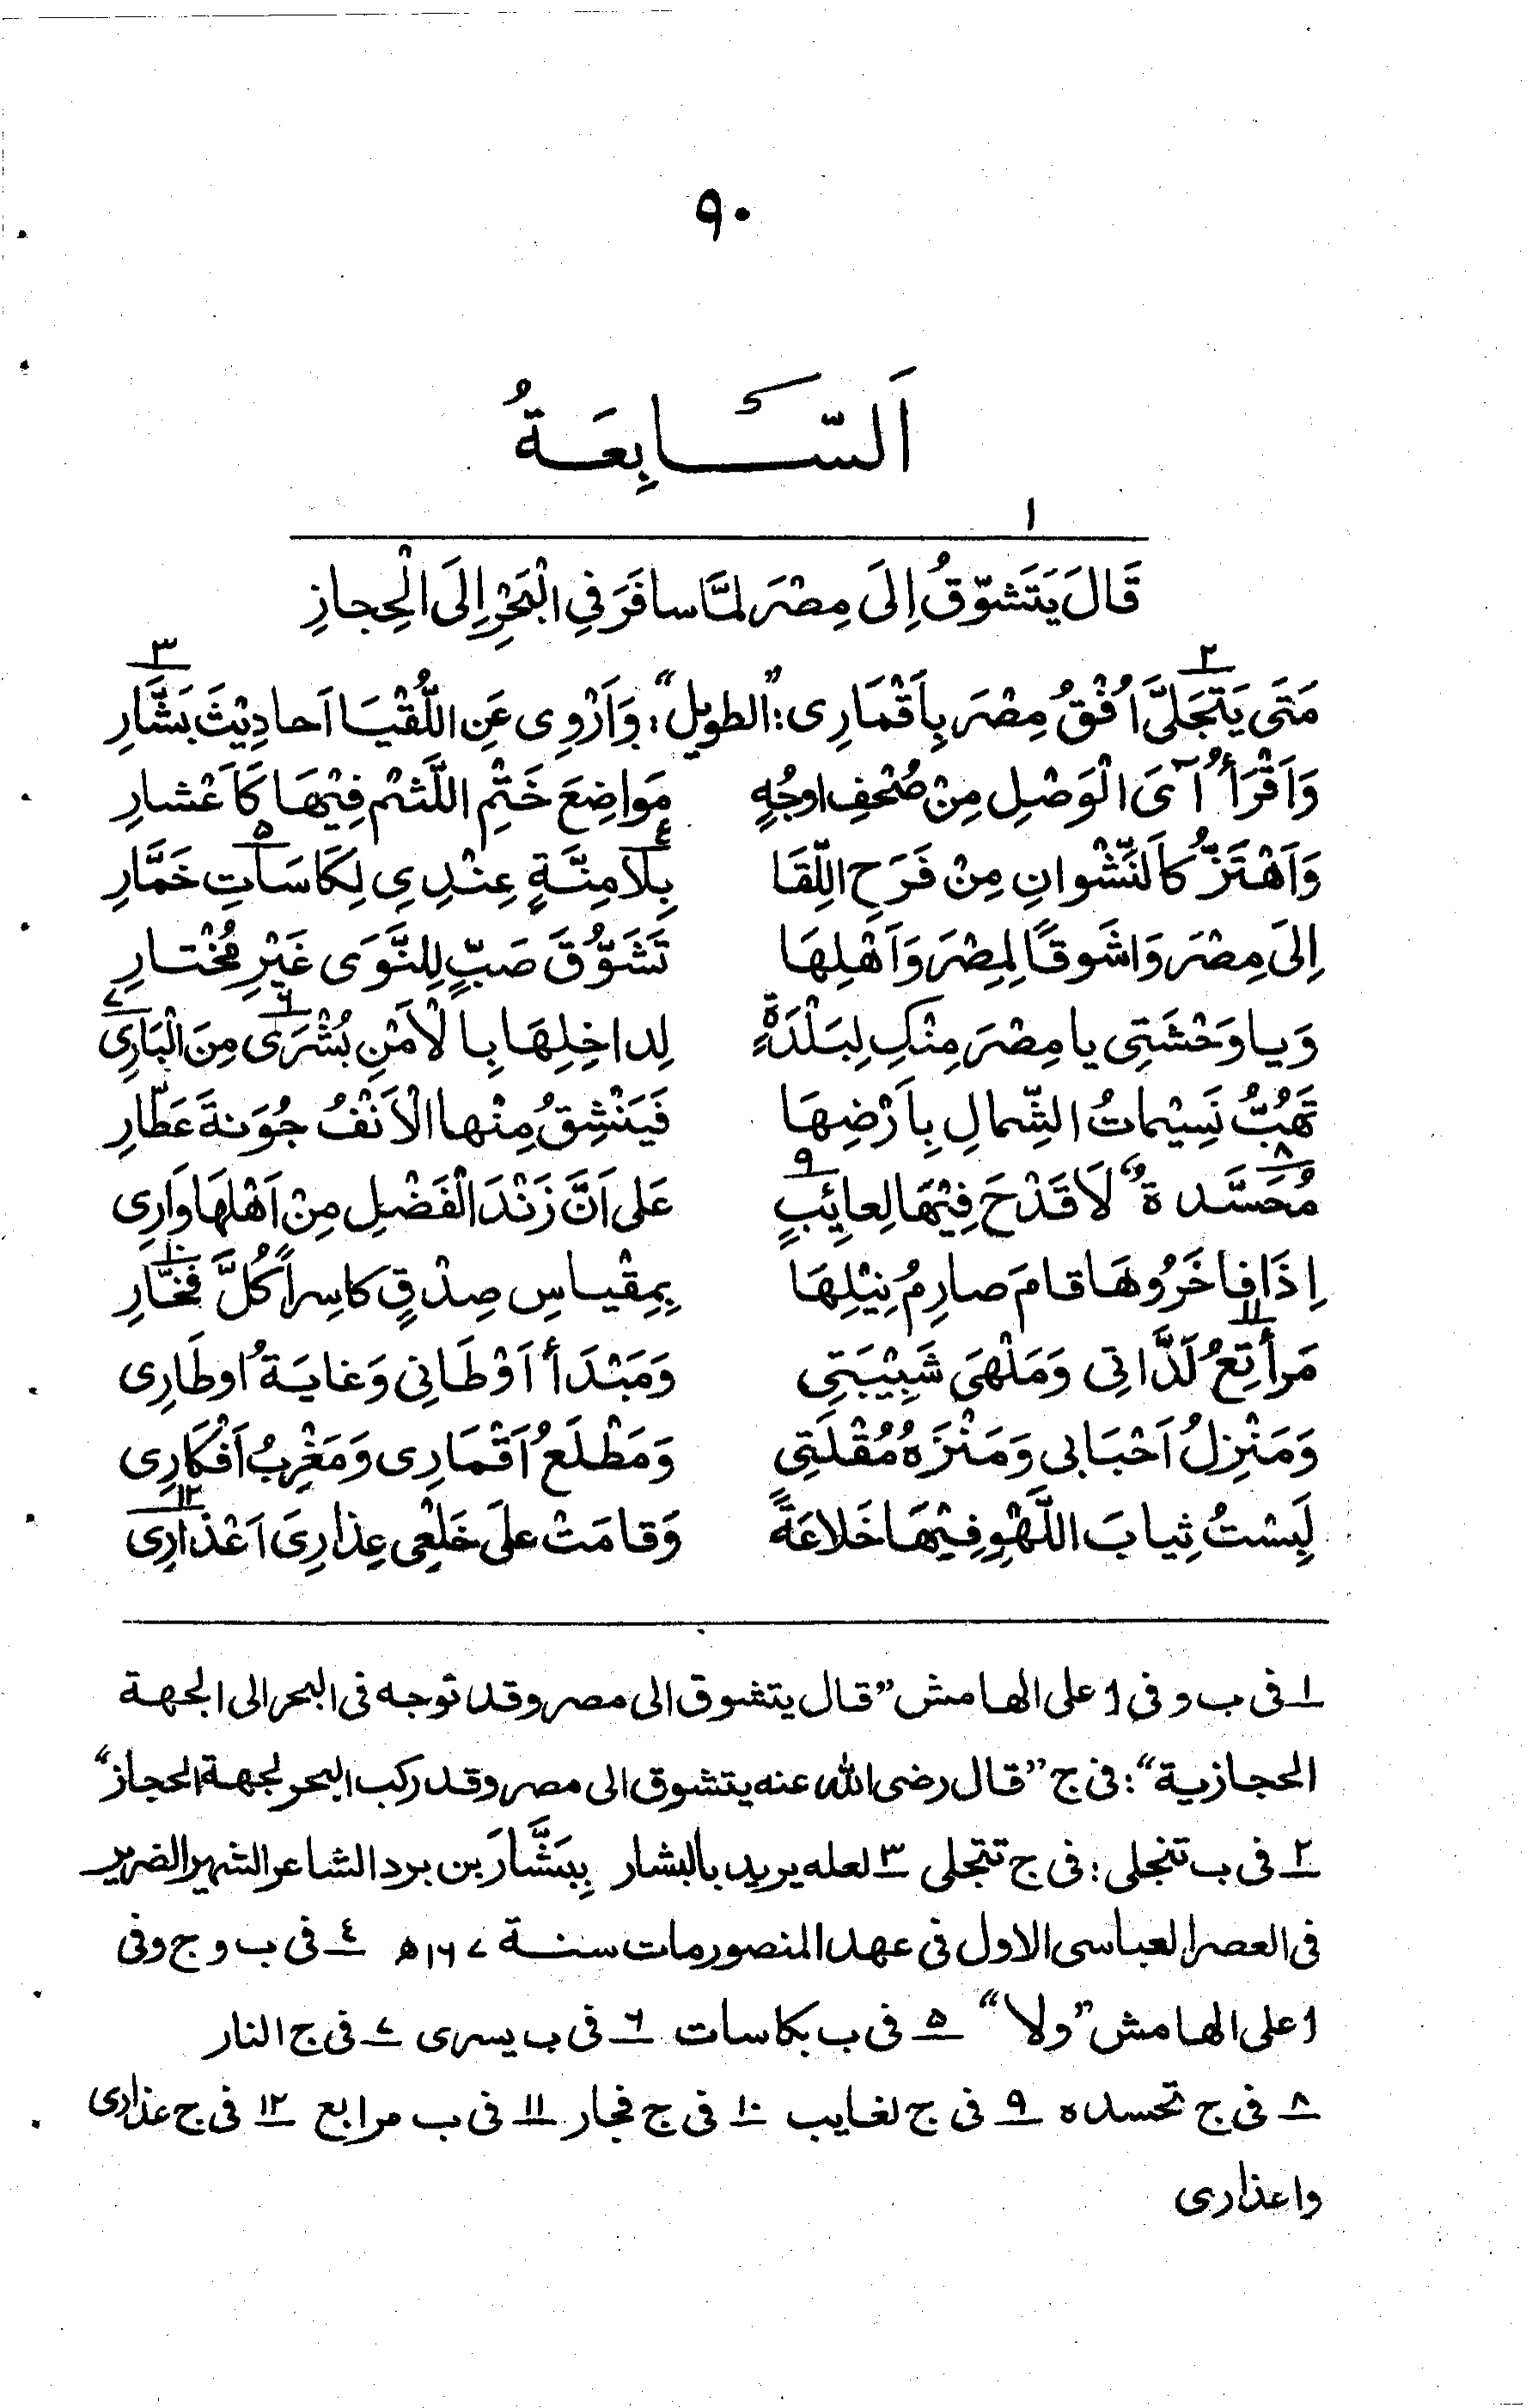 ٩٠
اَلسَّابِعَةُ
١
قَالَ يَتَشَوَّقُ اِلَى مِصْرَ لَمَّا سافَرَ فِي الْبَحْرِ اِلَى الْحِجازِ
مَتَى يَتَجَلَّى٢ اُفْقُ مِصْرَ بِاَقْمَارِى :"الطويل": وَاَرْوِى عَنِ اللُّقْيَا اَحادِيْثَ بَشَّارِ٣
وَاَقْرَأُ آىَ الْوَصْلِ مِنْ صُحْفِ اوجُهٍ مَواضِعَ خَتْمِ اللَّثْمِ فِيْهَا كَاَعْشارِ
وَاَهْتَزُّ كالنَّشْوانِ مِنْ فَرَحِ اللِّقَا بِلَا٤ مِنَّةٍ عِنْدِي لِكَاسَاتِ٥ خَمَّارِ
اِلىَ مِصْرَ وَاشَوقًا لِمِصْرَ وَاَهْلِهَا تَشَوُّقَ صَبٍّ لِلنَّوَى غَيْرِ مُخْتارِ
وَياوَحْشَتِى يا مِصْرَ مِنْكِ لِبَلْدَةٍ لِداخِلِهَا بِالْاَمْنِ بُشْرَى٦ مِنَ الْبَارِي٧
تَهُبُّ نَسِيْماتُ الشِّمالِ بِاَرْضِهَا فَيَنْشِقُ مِنْها الْاَنْفُ جُوَنةَ عَطّارِ
مُحَسَّدةٌ٨ لَا قَدْحَ فِيْهَا لِعائِبٍ٩ عَلى اَنَّ زَنْدَ الْفَضْلِ مِنْ اَهْلِهَا وَارِي
اِذَا فاخَرُوهَا قامَ صارِمُ نِيْلِهَا بِمِقْياسِ صِدْقٍ كاسِراً كُلَّ فَخَّارِ١٠
مَرأتِعُ١١ لَذَّاتِى وَمَلْهَى شَبِيْبَتِى وَمَبْدَأُ اَوْطَانِى وَغايَةُ اوطَارِى
وَمَنْزِلُ اَحْبَابى وَمَنْزَهُ مُقْلَتِى وَمَطْلَعُ اَقْمَارِى وَمَغْرِبُ اَفْكَارِى
لَبِسْتُ ثِيابَ اللَّهْوِ فِيْهَا خَلاعَةً وَقامَتْ علَى خَلْعِى عِذارِىَ اَعْذَارِى١٢
١ فى ب و فى ا على الهامش "قال يتشوق الى مصر وقد توجه فى البحر الى الجهة
الحجازية": فى ج "قال رضى الله عنه يتشوق الى مصر وقد ركب البحر لجهة الحجاز"
٢ فى ب تتجلى : فى ج تتجلى ٣ لعله يريد بالبشار بِبَشَّارَ بن برد الشاعر الشهير الضرير
فى العصر العباسى الاول فى عهد المنصور مات سنة ١٦٧ه ٤ فى ب و ج وفى
ا على الهامش "ولا" ٥ فى ب بكاسات ٦ فى ب يسرى ٧ فى ج النار
٨ فى ج تحسده ٩ فى ج لغايب ١٠ فى ج فجار ١١ فى ب مرابع ١٢ فى ج عذارى
واعذارى